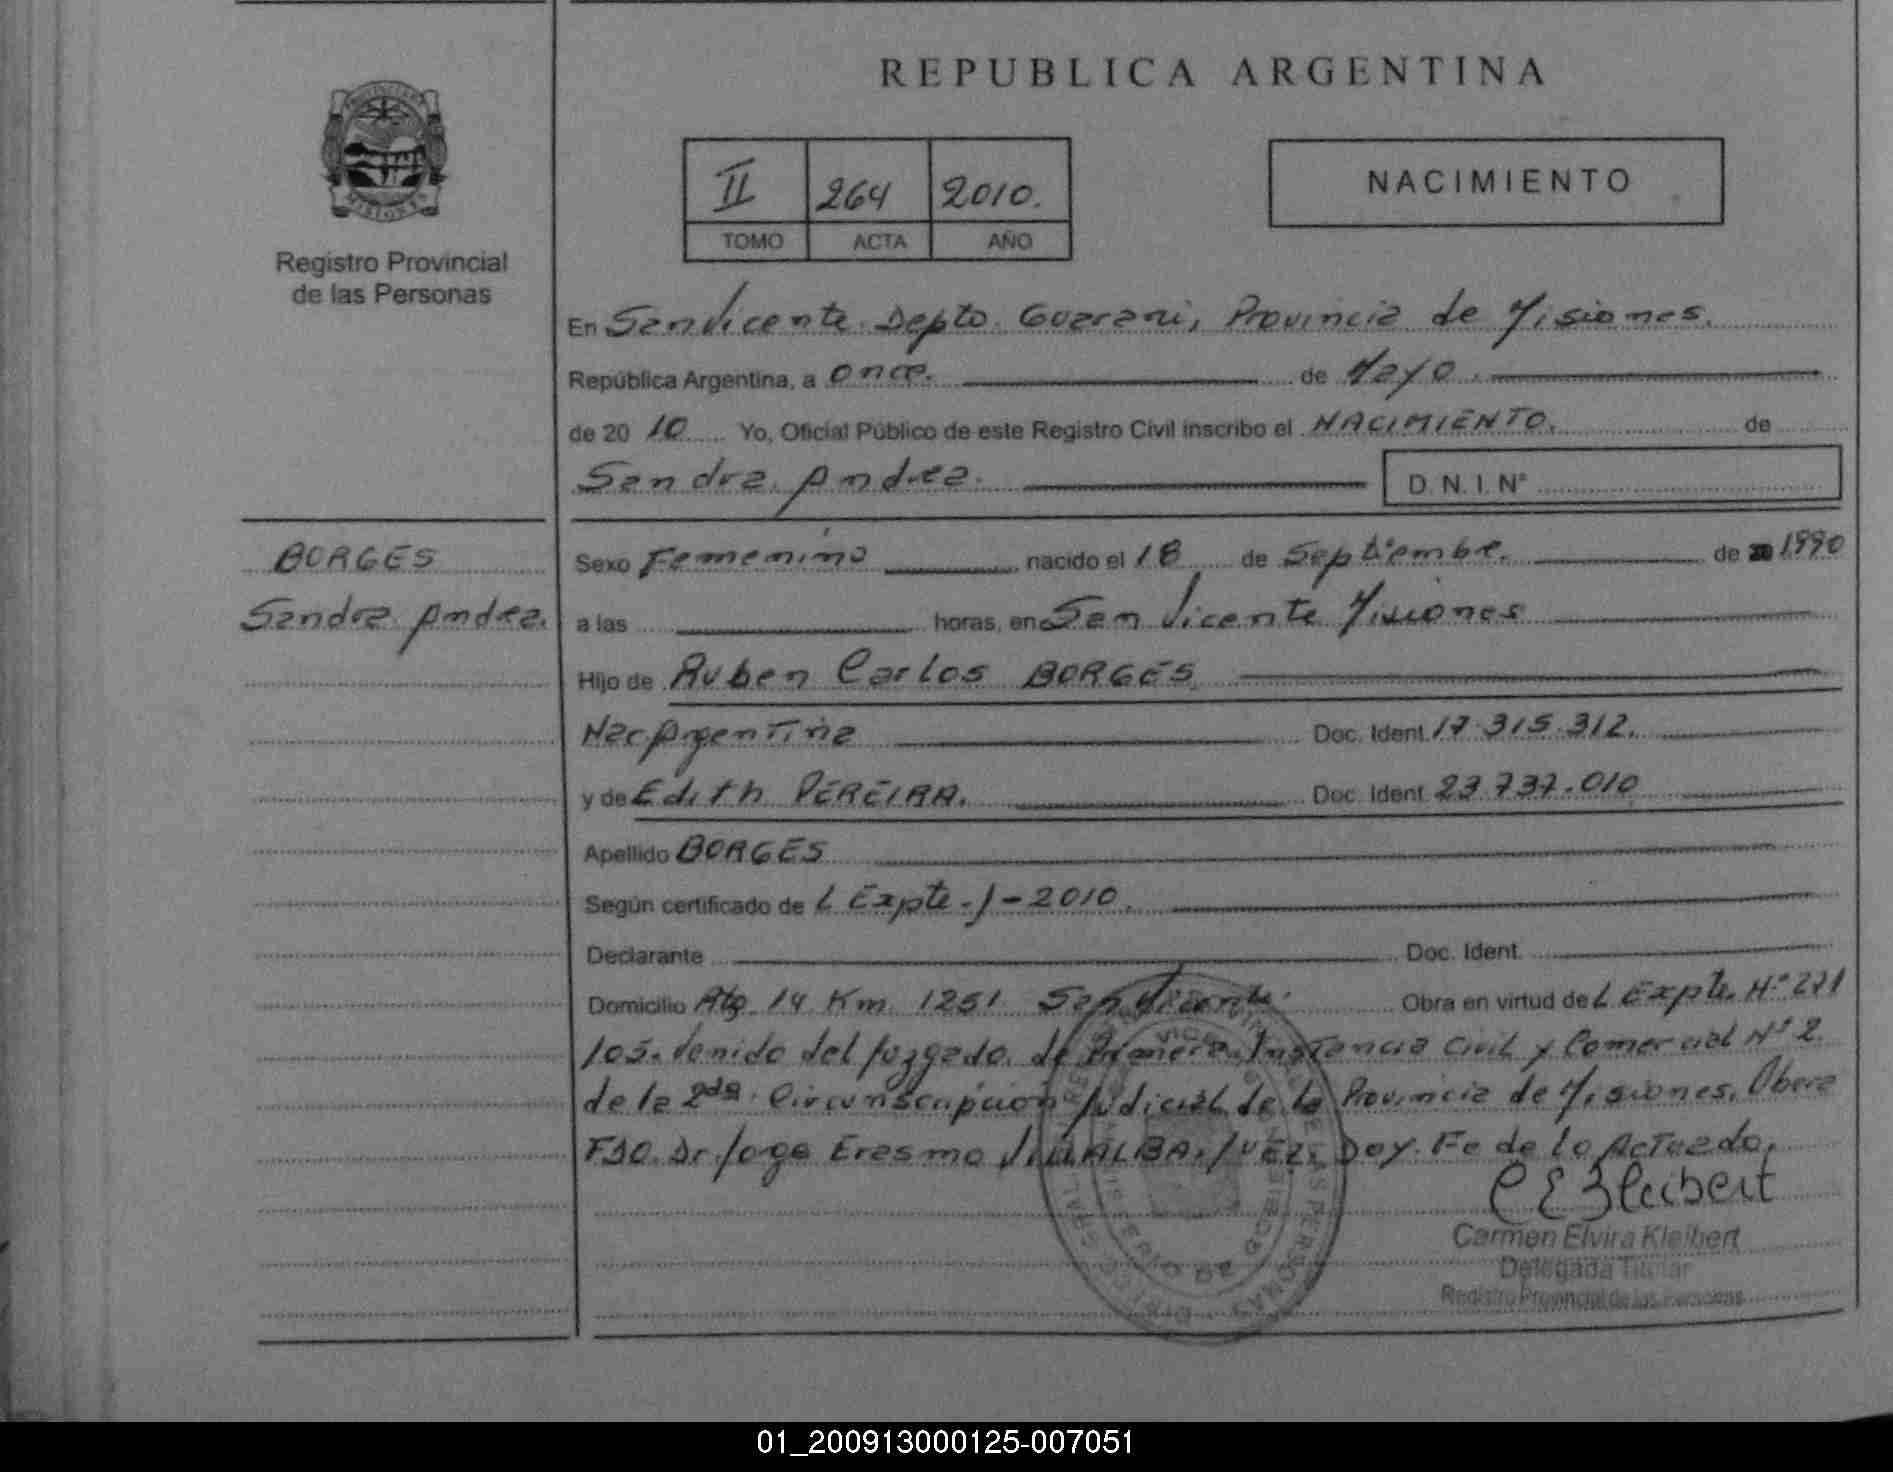 REPUBLICA ARGENTINA
II 264 2010.
TOMO ACTA AÑO
NACIMIENTO
MISIONES
Registro Provincial
de las Personas
En San Vicente Depto Guarani, Provincia de Misiones.
República Argentina, a once. de Mayo.
de 20 10 Yo, Oficial Público de este Registro Civil inscribo el NACIMIENTO. de
Sandra Andrea. D. N. I. Nº
BORGES
Sandra Andrea.
Sexo Femenino nacido el 18 de Septiembre. de 1990
a las horas, en San Vicente Misiones
Hijo de Ruben Carlos BORGES
Nac Argentina Doc. Ident. 17.315.312.
y de Edith PEREIRA. Doc. Ident. 23.737.010
Apellido BORGES
Según certificado de L Expte. J-2010.
Declarante Doc. Ident.
Domicilio Km 1251 San Vicente. Obra en virtud de L Expte. Nº
105. Venido del Juzgado de Primera Instancia Civil y Comercial Nº 2
de la 2da Circunscripcion Judicial de la Provincia de Misiones. Obera
FDO. Dr Jorge Erasmo VILLALBA. JUEZ. Doy Fe de lo Actuado.
Carmen Elvira Kleibert
Delegada Titular
Registro Provincial de las Personas
01_200913000125-007051